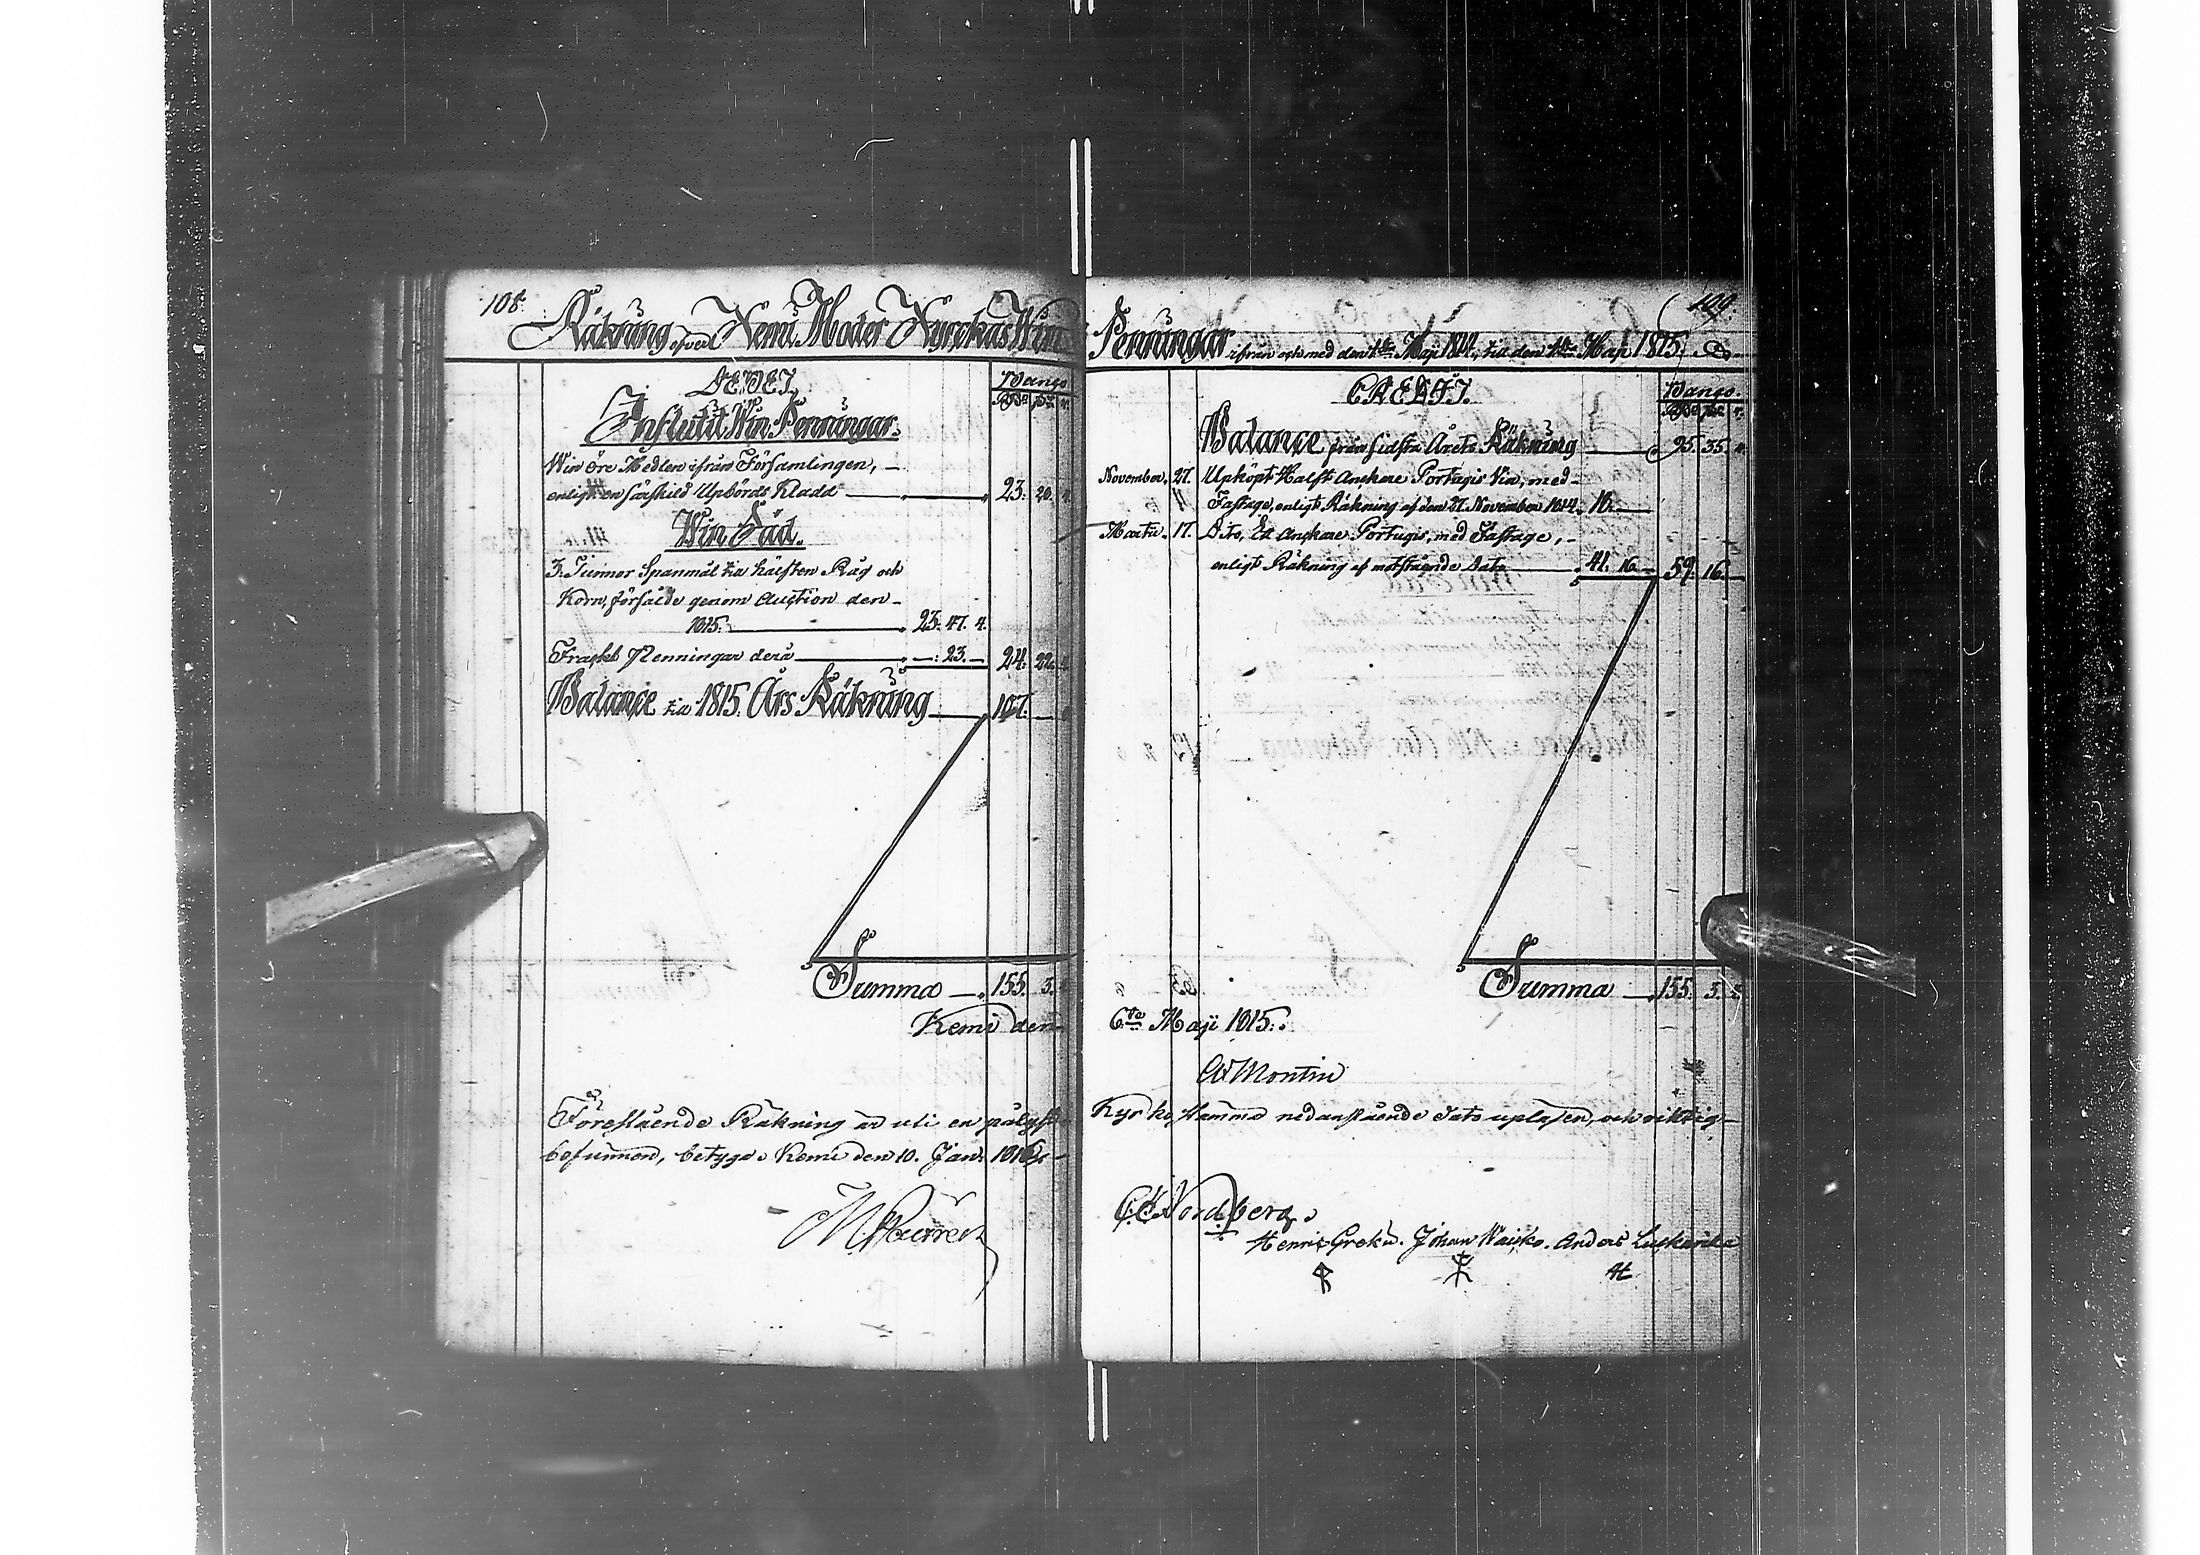 108.
Räkning öfver Kemi Moder Kyrckas Win
DEBET.
Banco
Influtit Win Penningar.
Win öre Medlen ifrån Församlingen,
enligt en särskild Upbörds Kladd 23. 20.
Win Säd.
3. Tunnor Spanmål till hälften Råg och
Korn, försålde genom Auction den
1815. 23. 47. 4.
Frackt Penningar derå 23. 24. 22.
Balance till 1815. Års Räkning 107.
Summa 155. 3.
Kemi den
Föreståendе Räkning är uti en pålyst
befunnen, betygar Kemi den 10. Jan. 1816.
109.
Penningar ifrån och med den 1ste Maji 1814, till den 1ste Maji 1815.
CREDIT.
Banco.
Balance från sidsta Årets Räkning 95. 35.
November. 27. Upköpt Halft Anckare Portugis Vin, med
Fastage, enligt Räkning af den 27. November 1814. 18.
Martii. 17. Dito, Ett Anckare Portugis, med Fastage,
enligt Räkning af motstående Dato 41. 16. 59. 16.
Summa 155. 3.
6te Maji 1815.
Montin
Kyrko stämma nedanstående dato upläsen, och riktig
Nordberg
Henric Greku. Johan Waicko. Anders